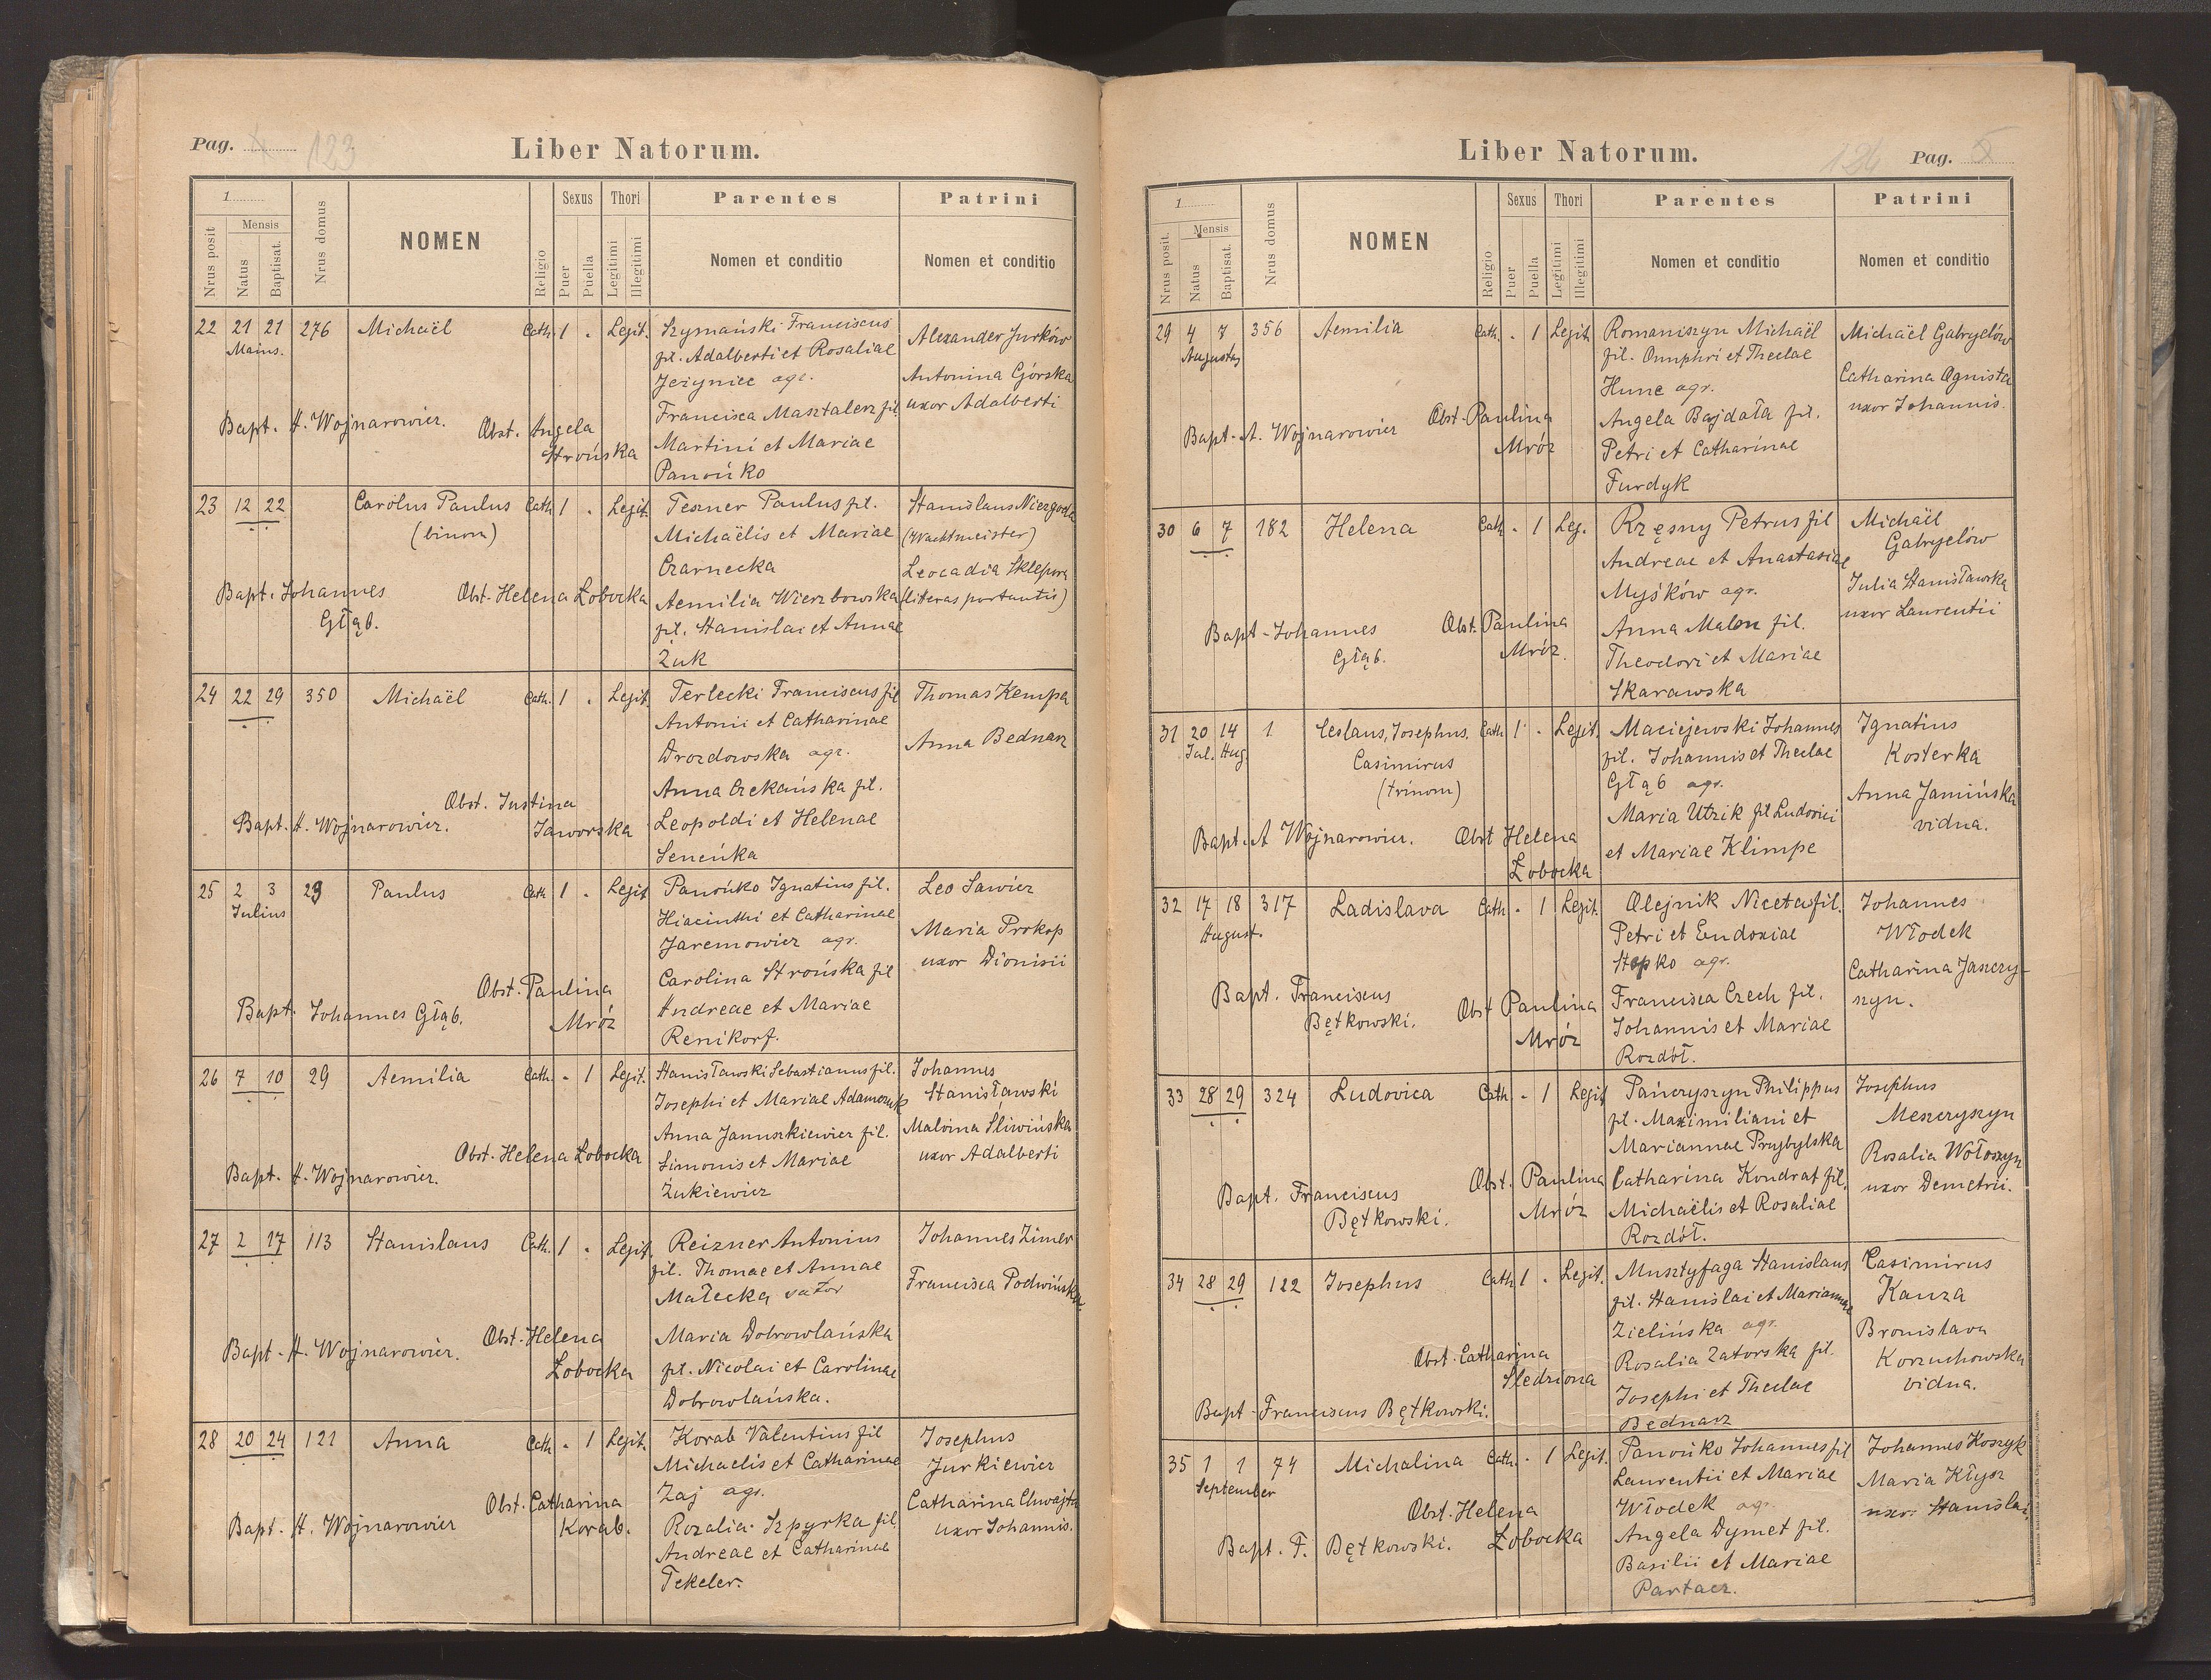 Pag. 123
Liber Natorum.
1
Nrus posit
Mensis
Natus
Baptisat.
Nrus domus
NOMEN
Religio
Sexus
Puer
Puella
Thori
Legitimi
Illegitimi
Parentes
Nomen et conditio
Patrini
Nomen et conditio
22 21 21 276 Michaël Cath. 1 . Legit.
Maius.
Szymański Franciscus
fil. Adalberti et Rosaliae
Jezyniec agr.
Francisca Masztalerz fil.
Martini et Mariae
Panońko
Alexander Jurków
Antonina Górska
uxor Adalberti
Bapt. A. Wojnarowicz. Obst. Angela
Strońska
23 12 22 Carolus Paulus Cath 1 . Legit.
(binom)
Tesner Paulus fil.
Michaëlis et Mariae
Czarnecka
Aemilia Wierzbowska
fil. Stanislai et Annae
Żuk
Stanislaus Niezgoda
(Wachtmeister)
Leocadia Sklepowa
(literas portantis)
Bapt. Johannes
Głąb.
Obst. Helena Łobocka
24 22 29 350 Michaël Cath. 1 . Legit.
Terlecki Franciscus fil
Antonii et Catharinae
Drozdowska agr.
Anna Czekańska fil.
Leopoldi et Helenae
Seneńka
Thomas Kempa
Anna Bednarz
Bapt. A. Wojnarowicz.
Obst. Justina
Jaworska
25 2 3 29 Paulus Cath 1 . Legit
Julius
Panońko Ignatius fil.
Hiacinthi et Catharinae
Jaremowicz agr.
Carolina Strońska fil
Andreae et Mariae
Renikorf.
Leo Sawicz
Maria Prokop
uxor Dionisii
Bapt. Johannes Głąb.
Obst. Paulina
Mróz
26 7 10 29 Aemilia Cath. - 1 Legit.
Stanisławski Sebastianus fil.
Josephi et Mariae Adamczuk
Anna Januszkiewicz fil.
Simonis et Mariae
Żukiewicz
Johannes
Stanisławski
Malvina Śliwińska
uxor Adalberti
Bapt. A. Wojnarowicz.
Obst. Helena Łobocka
27 2 17 113 Stanislaus Cath. 1 . Legit.
Reizner Antonius
fil. Thomae et Annae
Małecka
Maria Dobrowlańska
fil. Nicolai et Carolinae
Dobrowlańska.
Johannes Zimer
Francisca Podwińska
Bapt. A. Wojnarowicz.
Obst. Helena
Łobocka
28 20 24 121 Anna Cath - 1 Legit.
Korab Valentius fil
Michaelis et Catharinae
Zaj agr.
Rozalia Szpyrka fil.
Andreae et Catharinae
Tekeler.
Josephus
Jurkiewicz
Catharina Chwajta
uxor Johannis.
Bapt. A. Wojnarowicz
Obst. Catharina
Korab.
Liber Natorum.
124 Pag. 5
1
Nrus posit.
Mensis
Natus
Baptisat.
Nrus domus
NOMEN
Religio
Sexus
Puer
Puella
Thori
Legitimi
Illegitimi
Parentes
Nomen et conditio
Patrini
Nomen et conditio
29 4 7 356 Aemilia Cath. - 1 Legit.
Augustus
Romaniszyn Michaël
fil. Onuphri et Theclae
Hunc agr.
Angela Bajdała fil.
Petri et Catharinae
Furdyk
Michaël Gabryelów
Catharina Ognista
uxor Johannis.
Bapt. A. Wojnarowicz
Obst. Paulina
Mróz
30 6 7 182 Helena Cath - 1 Leg.
Rzęsny Petrus fil
Andreae et Anastasiae
Myśków agr.
Anna Malon fil.
Theodori et Mariae
Skarawska
Michaël
Gabryelów
Julia Stanisławska
uxor Laurentii
Bapt. Johannes
Głąb.
Obst. Paulina
Mróz.
31 20 14 1 Ceslaus, Josephus. Cath 1 . Legit.
Jul. Aug.
Casimirus
(trinom)
Maciejewski Johannes
fil. Johannis et Theclae
Głąb agr.
Maria Utzik fil Ludovici
et Mariae Klimpe
Ignatius
Kosterka
Anna Jamińska
vidua.
Bapt. A Wojnarowicz.
Obst Helena
Łobocka
32 17 18 317 Ladislava Cath - 1 Legit.
August.
Olejnik Niceta fil.
Petri et Eudoxiae
Stepko agr.
Francisca Czech fil.
Johannis et Mariae
Rozdół.
Johannes
Włodek
Catharina Janczy-
szyn.
Bapt. Franciscus
Bętkowski.
Obst Paulina
Mróz
33 28 29 324 Ludovica Cath. - 1 Legit
Pańczyszyn Philippus
fil. Maximiliani et
Mariannae Przybylska
Catharina Kondrat fil.
Michaëlis et Rosaliae
Rozdół.
Josephus
Meszczyszyn
Rosalia Wołoszyn
uxor Demetrii.
Bapt. Franciscus
Bętkowski.
Obst. Paulina
Mróz
34 28 29 122 Josephus Cath 1 . Legit.
Musztyfaga Stanislaus
fil. Stanislai et Mariannae
Zielińska agr.
Rosalia Zatorska fil.
Josephi et Theclae
Bednarz
Casimirus
Kanza
Bronislava
Korzuchowska
vidua.
Obst. Catharina
Śledziona
Bapt. Franciscus Bętkowski.
35 1 1 74 Michalina Cath. - 1 Legit.
September
Panońko Johannes fil
Laurentii et Mariae
Włodek agr.
Angela Dymet fil.
Basilii et Mariae
Partacz.
Johannes Koszyk
Maria Kłysz
uxor Stanislai.
Obst. Helena
Łobocka
Bapt. F. Bętkowski.